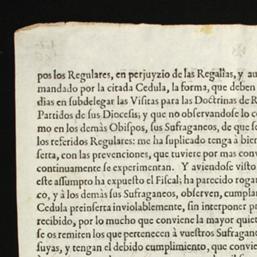 pos los Regulares, en perjuyzio de las Regalias, y au
mandado por la citada Cedula, la forma, que deben
dias en subdelegar las Visitas para las Doctrinas de R
Partidos de sus Diocesis; y que no observandose lo co
mo en los demàs Obispos, sus Sufraganeos, de que se
los referidos Regulares: me ha suplicado tenga à bien
serta, con las prevenciones, que tuviere por mas conv
continuamente se experimentan. Y aviendose visto
este assumpto ha expuesto el Fiscal; ha parecido rogar
co, y à los demàs sus Sufraganeos, observen, cumplan
Cedula preinserta inviolablemente, sin interponer p
recibido, por lo mucho que conviene la mayor quiet
se os remiten los que pertenecen à vuestros Sufragan
suyas, y tengan el debido cumplimiento, que convie